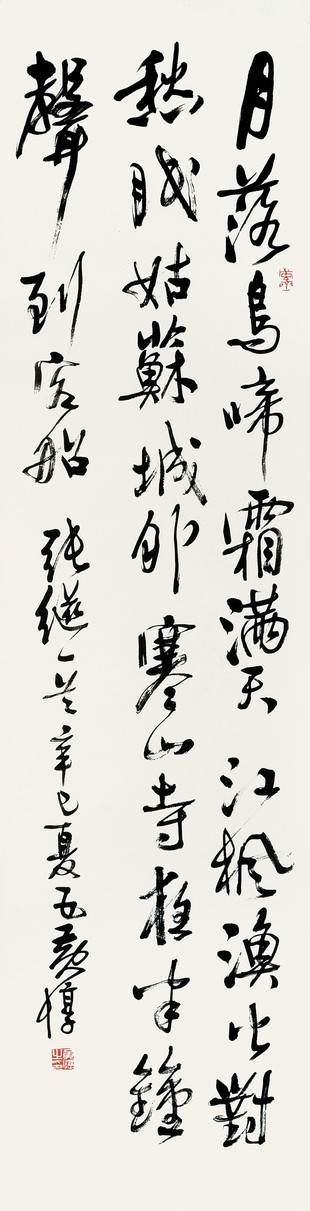 月落烏啼霜滿天江楓漁火對
愁眠姑蘇城外寒山寺夜半鐘
聲到客船 張繼一首辛巳夏